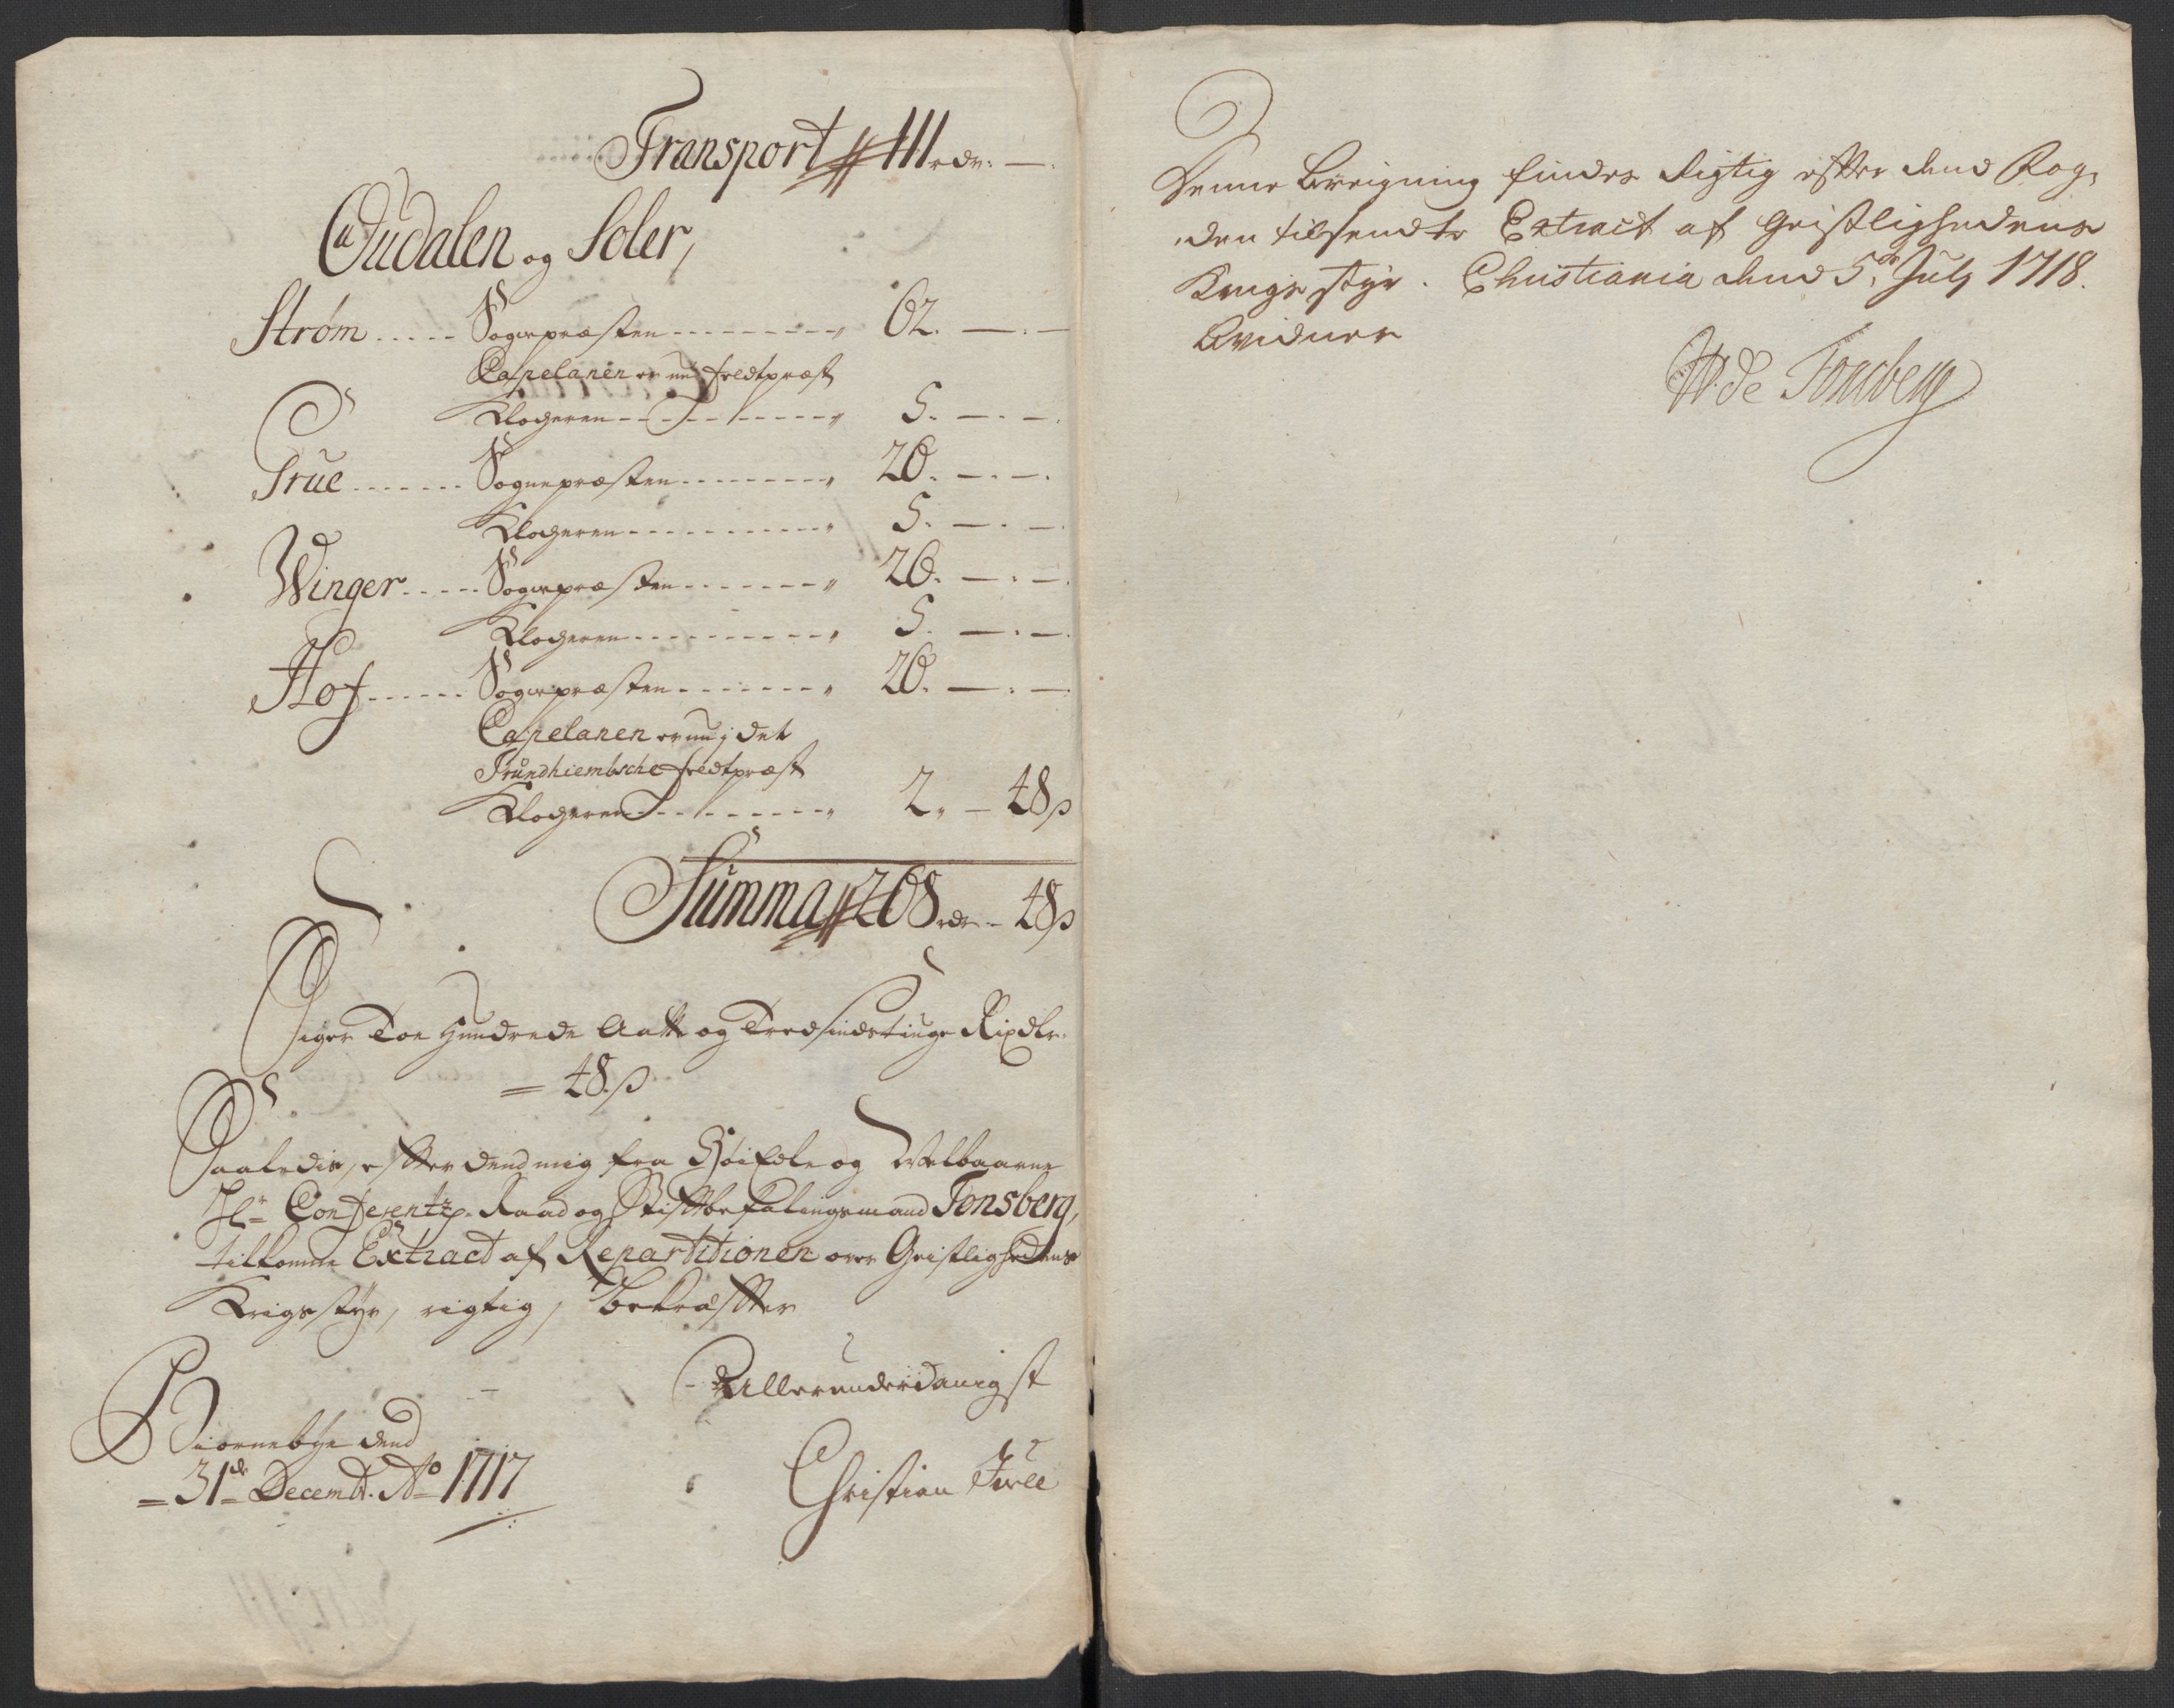 Transport # 111 rdr: —
Oudalen og Soler,
Strøm ..... Sognepræsten --------- 62. — . —
Capelanen er nu feldtpræst
Klocheren --------- 5. — . —
Grue ....... Sognepræsten --------- 26. — . —
Klocheren --------- 5. — . —
Winger ..... Sognepræsten --------- 26. — . —
Klocheren --------- 5. — . —
Hof ...... Sognepræsten --------- 26. — . —
Capelanen er nu j det
Trundhiembsche feldtpræst
Klocheren --------- 2. — 48 s
Summa # 268 rdr — 48 s
Siger Toe Hundrede Aatte og Tredsindstiuge Rixdlr.
= 48 s
Saaledis, efter dend mig fra HøiEdle og Velbaarne
Hr Conferentz-Raad og Stiftbefalingsmand Tonsberg,
tilkomne Extract af Repartitionen over Geistlighedens
Krigsstyr, rigtig, bekræfter
Allerunderdanigst
Biørnebye dend
= 31de Decembr. Ao 1717
Christian Juell
Denne Beregning findes Rigtig efter dend Fog-
den tilsendte Extract af Geistlighedens
Krigsstyr. Christiania dend 5de July 1718.
Bevidner
W. de Tonsberg